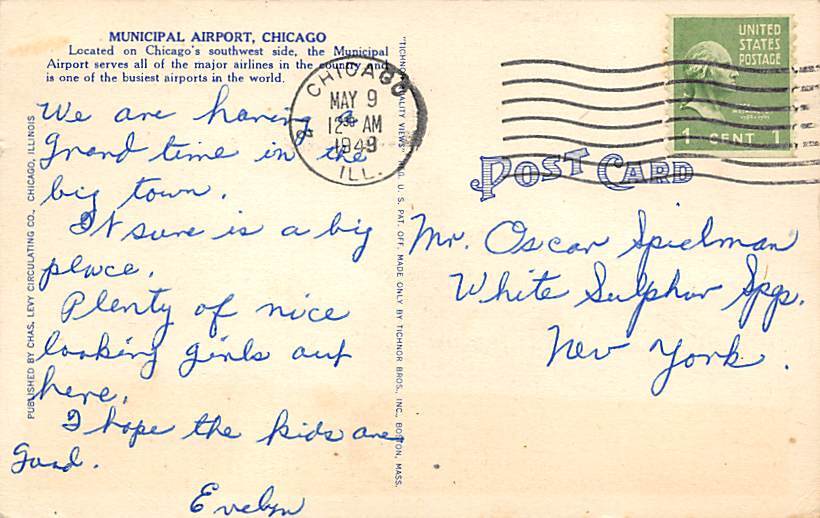 MUNICIPAL AIRPORT, CHICAGO
Located on Chicago's southwest side, the Municipal
Airport serves all of the major airlines in the country and
is one of the busiest airports in the world.
We are having a
Grand time in the
big town.
It sure is a big
place.
Plenty of nice
looking girls out
here.
I hope the kids are
Good.
Evelyn
PUBLISHED BY CHAS. LEVY CIRCULATING CO., CHICAGO, ILLINOIS
"TICHNOR QUALITY VIEWS" REG. U. S. PAT. OFF. MADE ONLY BY TICHNOR BROS. INC., BOSTON, MASS.
CHICAGO
MAY 9
12 30 AM
1949
ILL.
UNITED
STATES
POSTAGE
1 CENT 1
POST CARD
Mr. Oscar Spielman
White Sulphur Spgs.
New York.